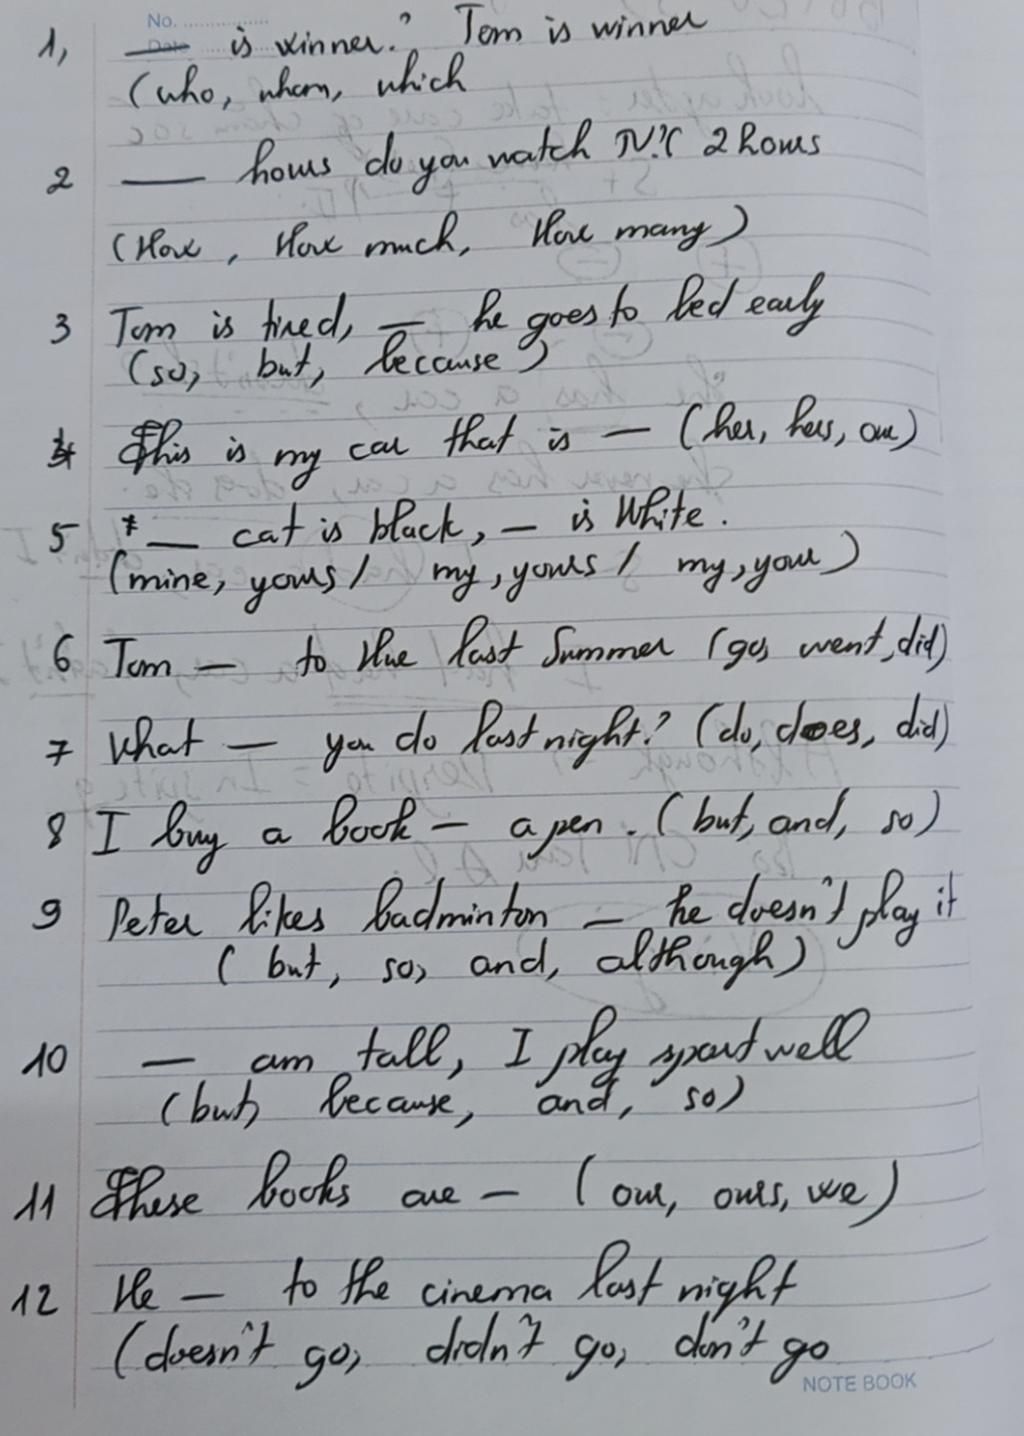 No. ..................
Date ..................
1, ___ is winner? Tom is winner
(who, whom, which
2 ___ hours do you watch TV? 2 hours
(How, How much, How many)
3 Tom is tired, — he goes to bed early
(so, but, because)
4 This is my car that is — (her, hers, our)
5 * — cat is black, — is White.
(mine, yours / my, yours / my, your)
6 Tom — to Hue last Summer (go, went, did)
7 What — you do last night? (do, does, did)
8 I buy a book — a pen. (but, and, so)
9 Peter likes badminton — he doesn't play it
(but, so, and, although)
10 — am tall, I play sport well
(but, because, and, so)
11 These books are — (our, ours, we)
12 He — to the cinema last night
(doesn't go, didn't go, don't go
NOTE BOOK